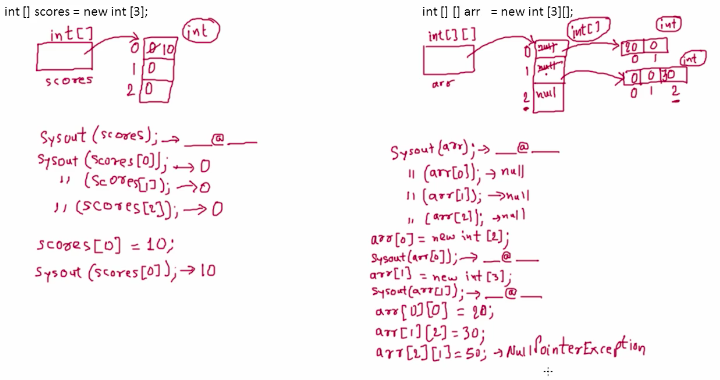 int [] scores = new int [3];
int[]
int
0 0 10
1 0
2 0
scores
Sysout (scores); → __@__
Sysout (scores[0]); → 0
" (scores[1]); → 0
" (scores[2]); → 0
scores[0] = 10;
Sysout (scores[0]); → 10
int [] [] arr = new int [3][];
int[][]
int[]
int
0 null
1 null
2 null
20 0
0 1
int
0 0 30
0 1 2
arr
Sysout (arr); → __@__
" (arr[0]); → null
" (arr[1]); → null
" (arr[2]); → null
arr[0] = new int [2];
Sysout(arr[0]); → __@__
arr[1] = new int [3];
Sysout(arr[1]); → __@__
arr[0][0] = 20;
arr[1][2] = 30;
arr[2][1] = 50; → NullPointerException